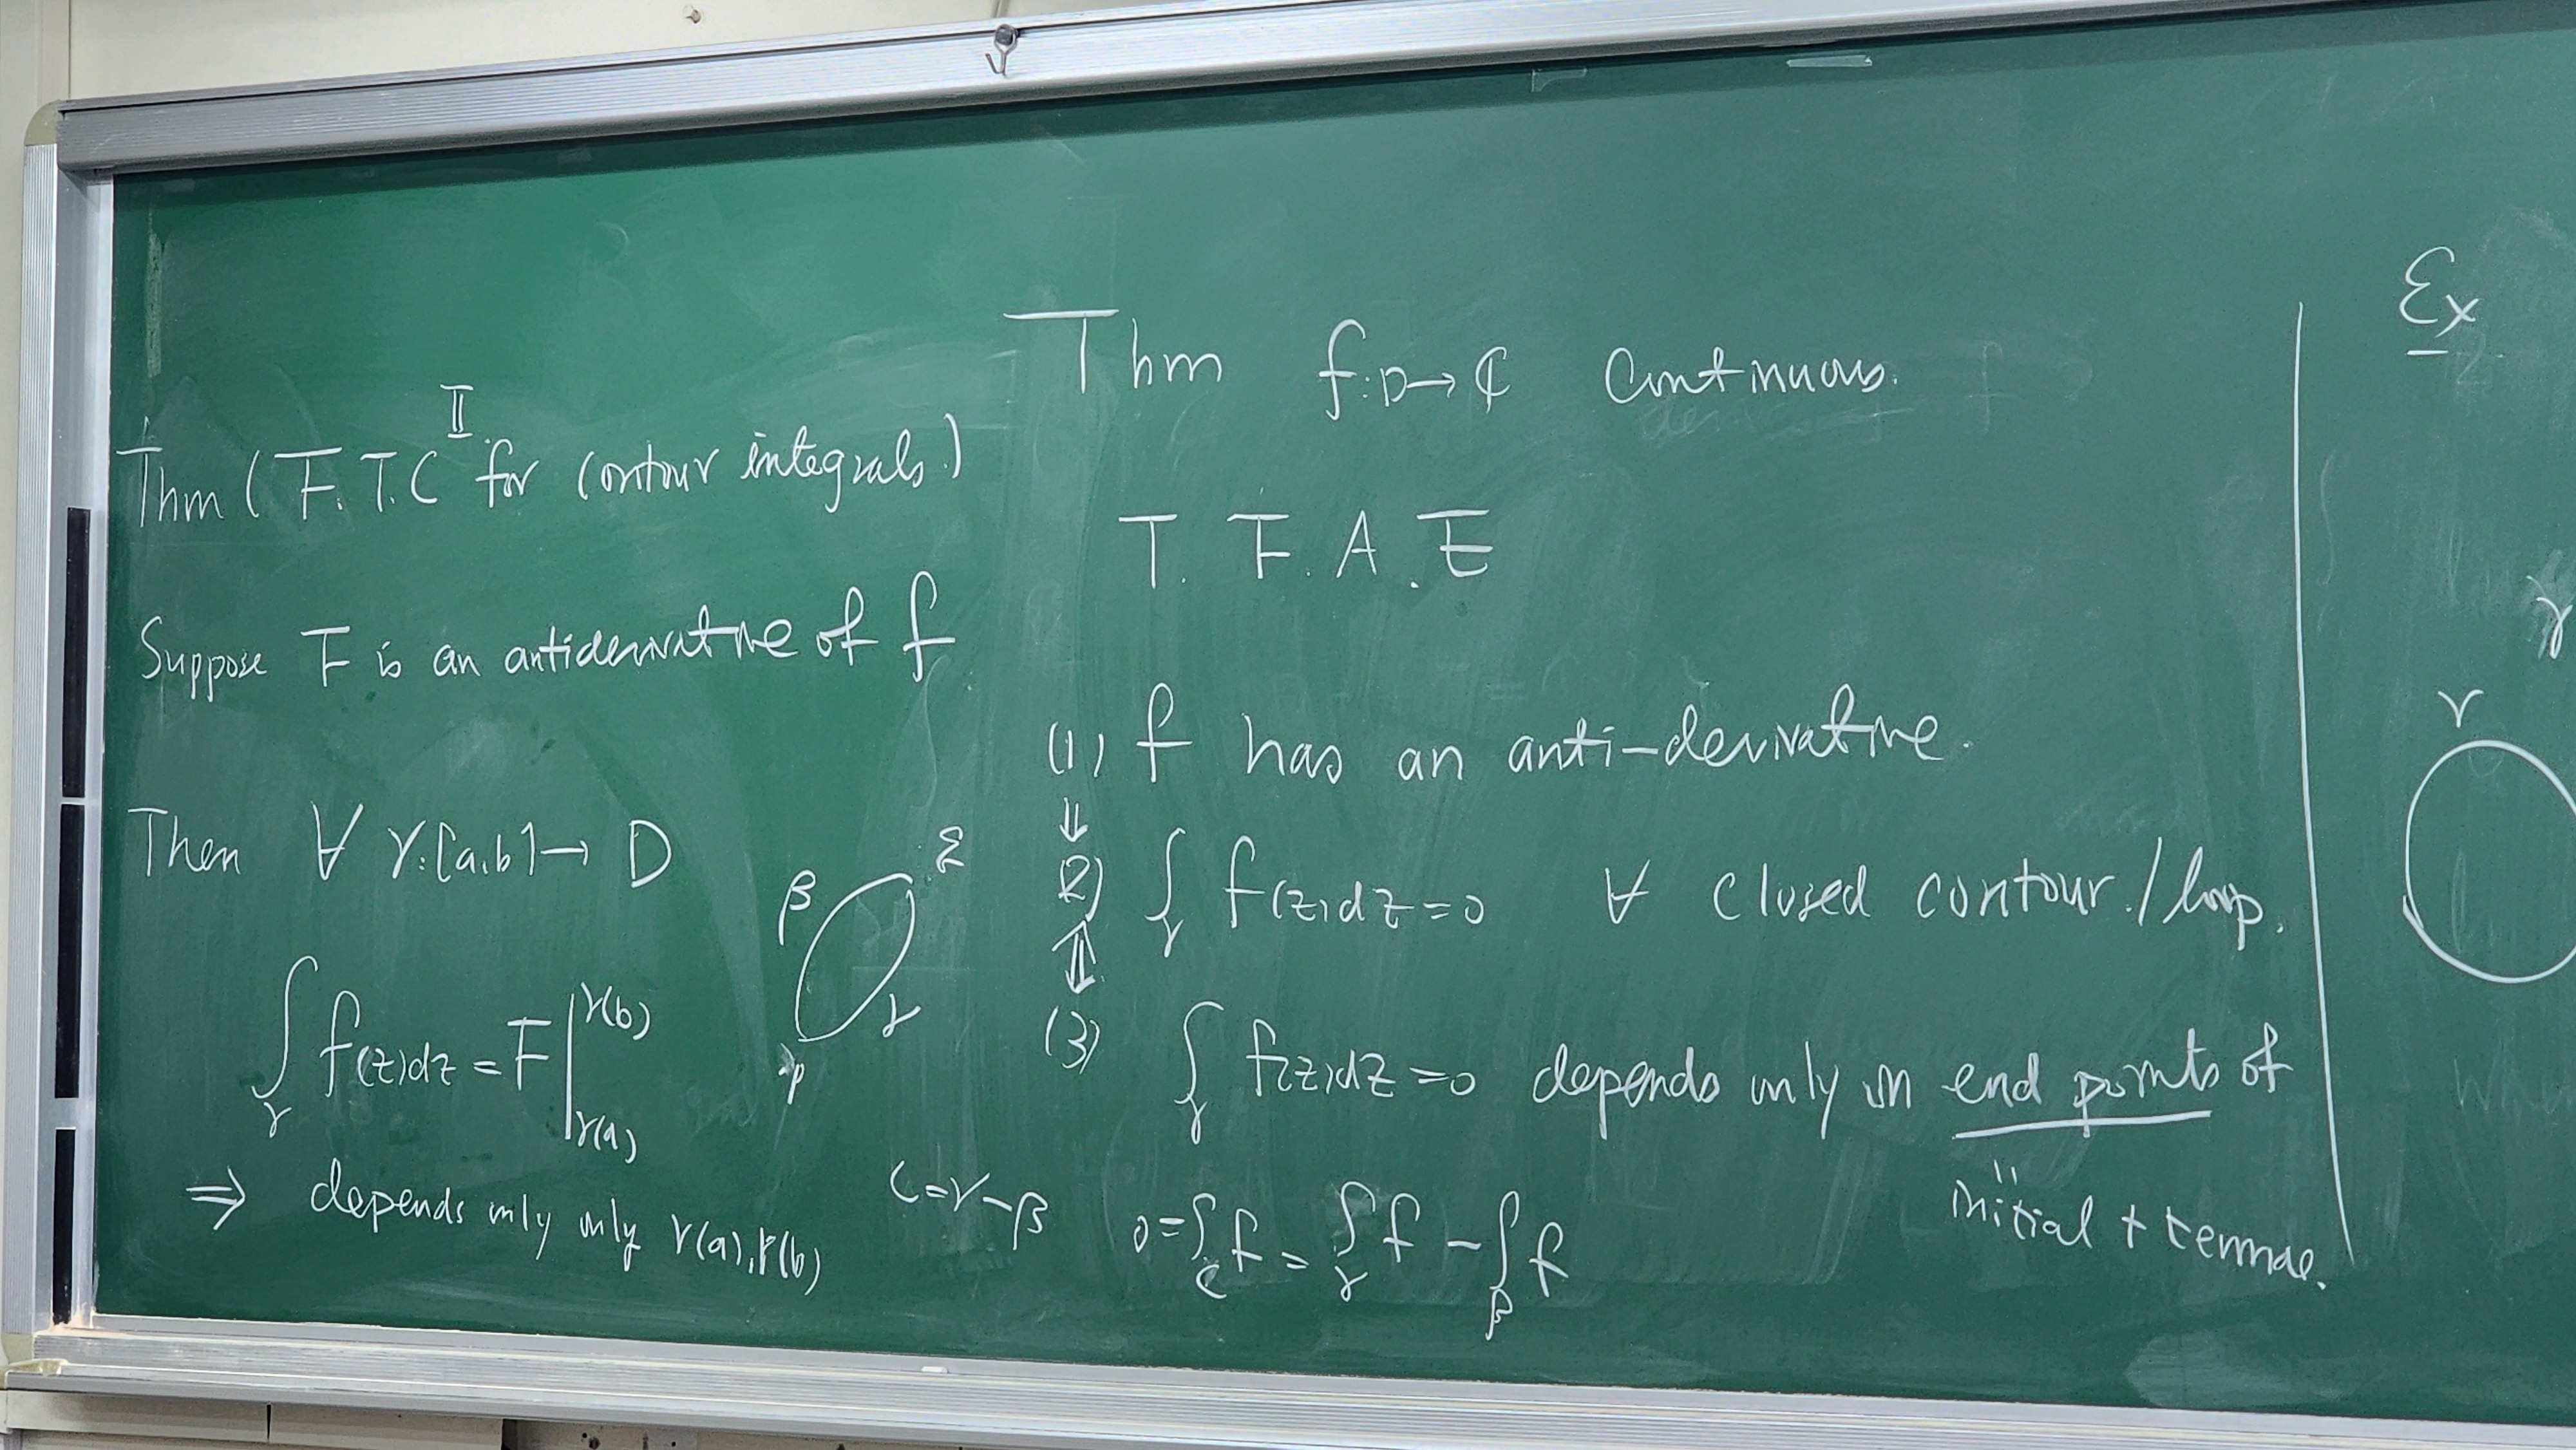 Thm (F.T.C II for contour integrals.)
Suppose F is an antiderivative of f
Then ∀ γ:[a,b]→ D
∫_γ f(z)dz = F|_γ(a)^γ(b)
⇒ depends only only γ(a), γ(b)
β
γ
p
C=γ-β
Thm f:D→ ℂ Continuous.
T.F.A.E
(1) f has an anti-derivative.
⇓
(2) ∫_γ f(z)dz=0 ∀ closed contour./loop.
⇕
(3) ∫_γ f(z)dz=0 depends only on end points of
"
initial +
0=∫_C f = ∫_γ f - ∫_β f
Ex
γ
γ